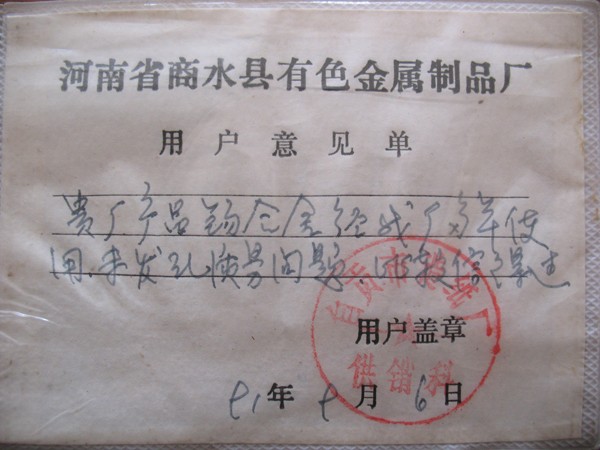 河南省商水县有色金属制品厂
用户意见单
贵厂产品锡合金经我厂多年使
用，未发现质量问题，
用户盖章
供销科
年 月 6 日